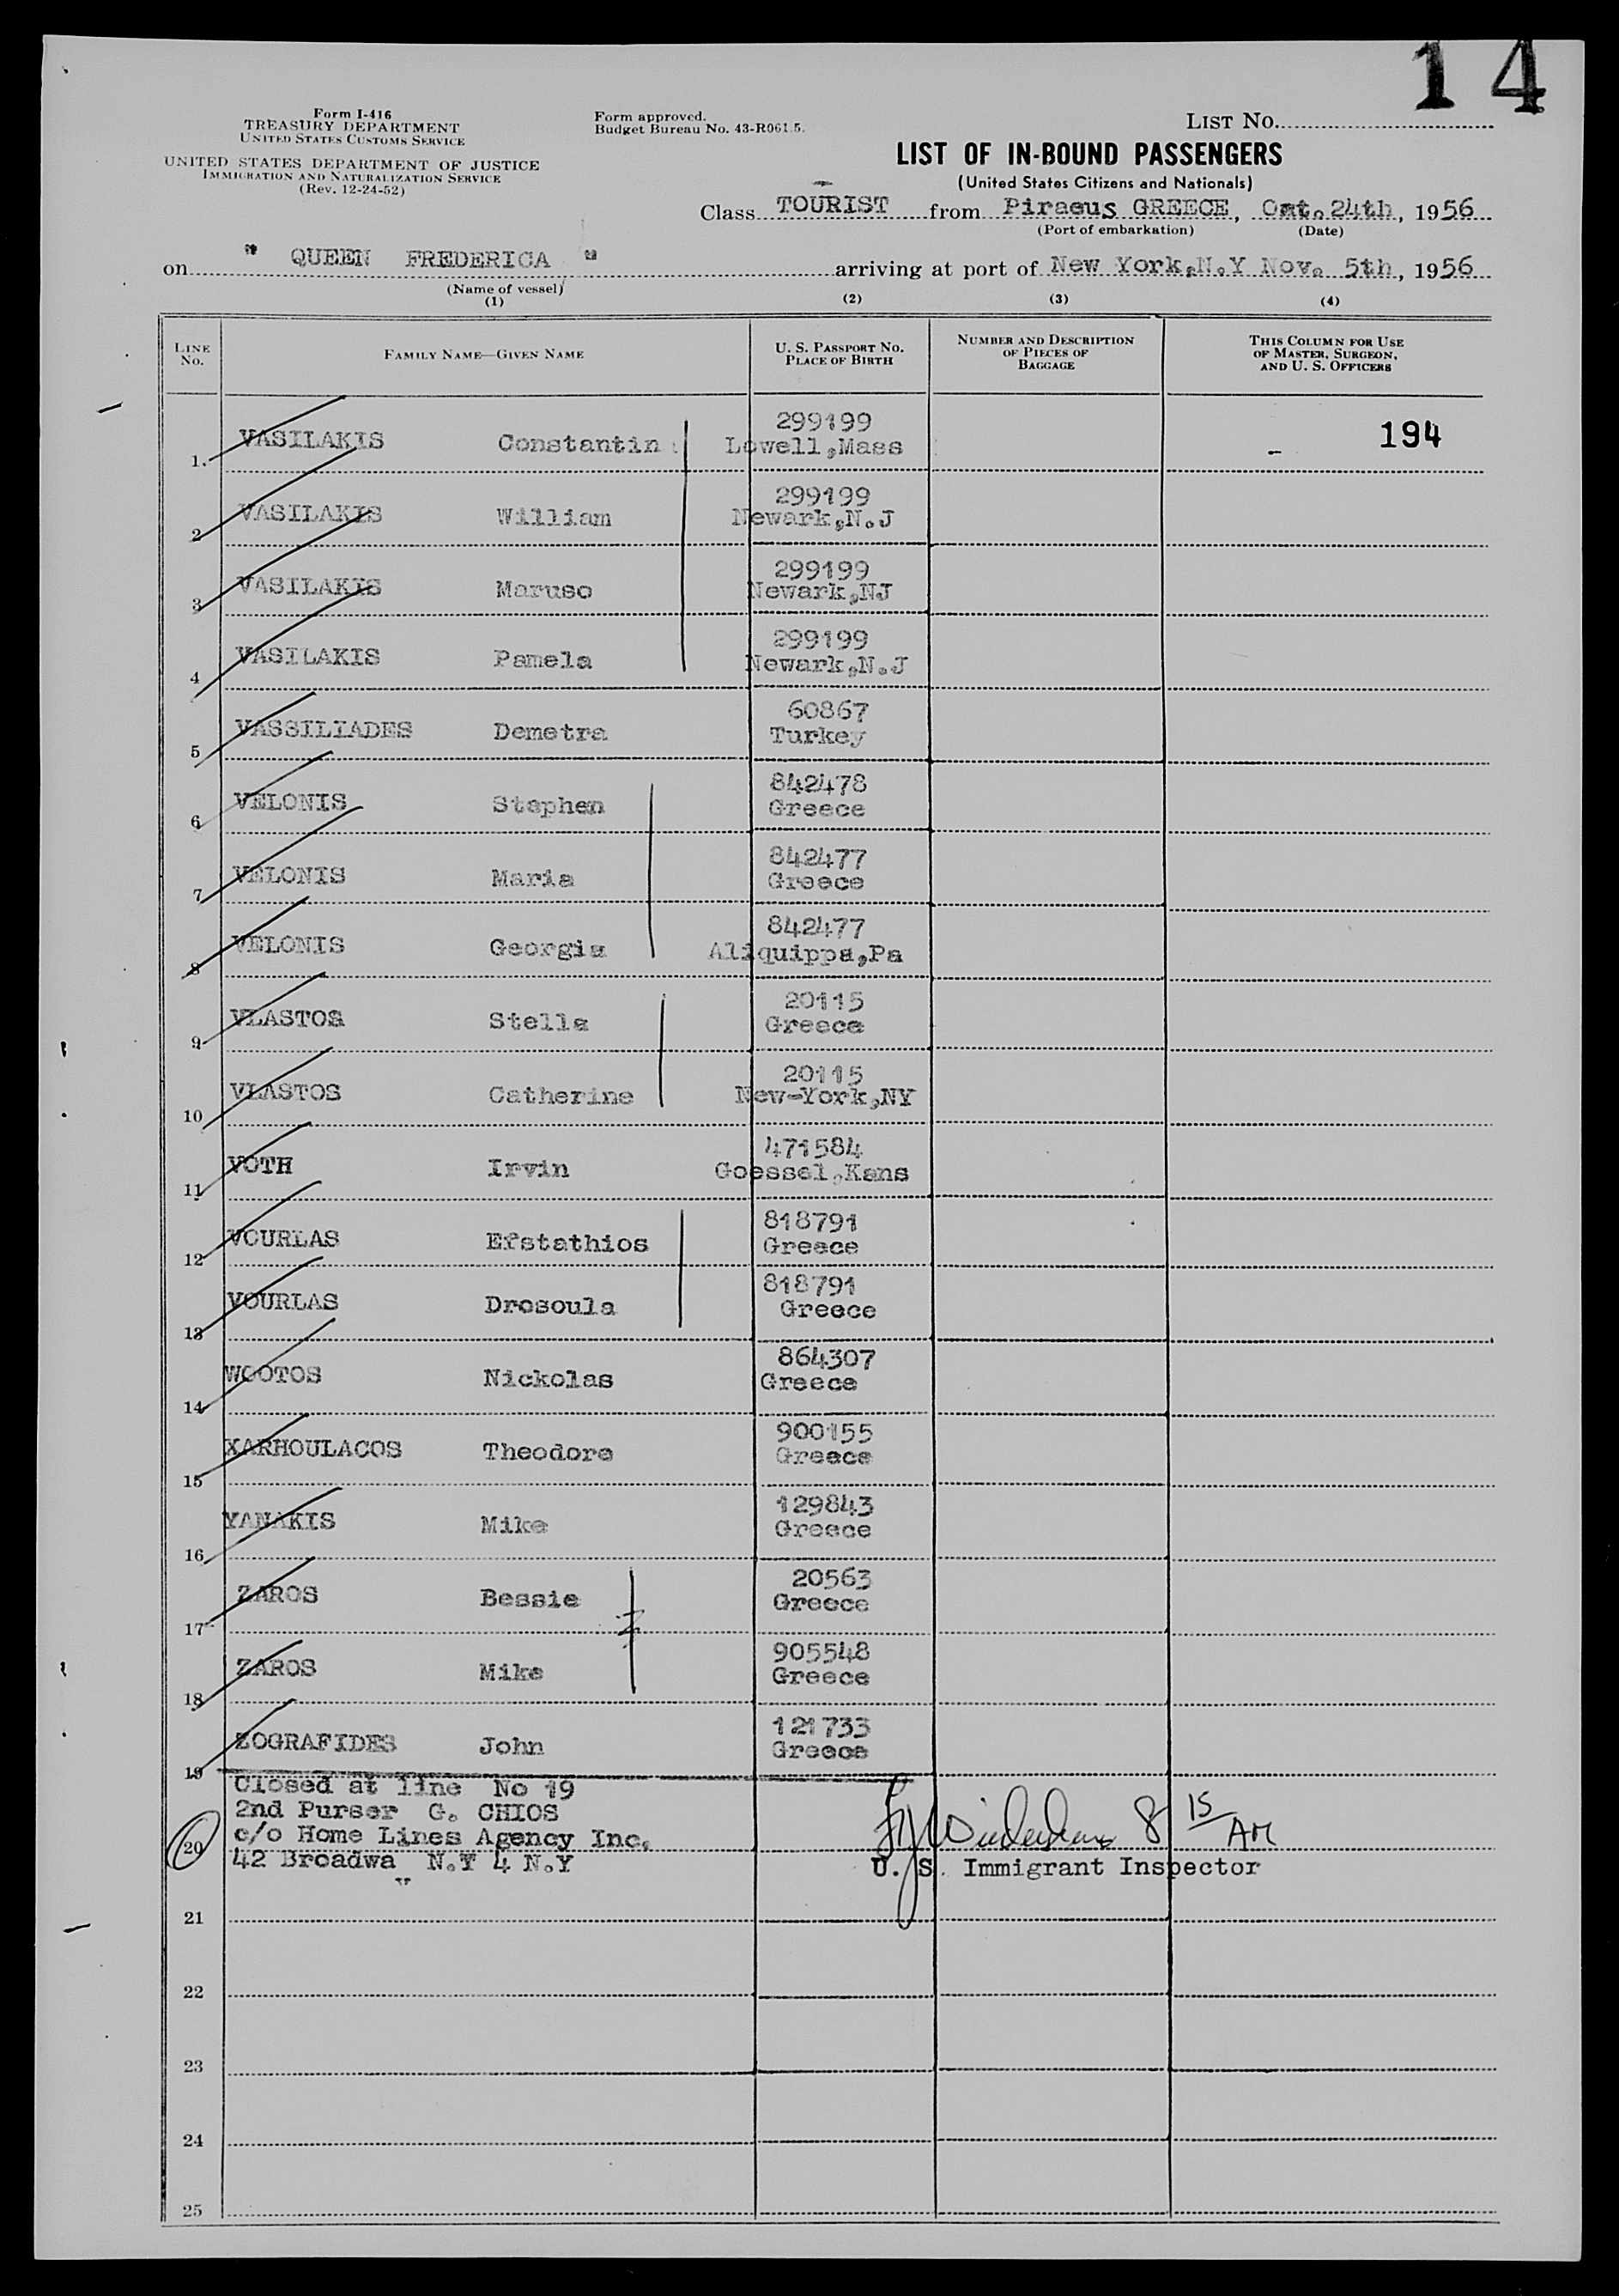 14
Form I-416
TREASURY DEPARTMENT
UNITED STATES CUSTOMS SERVICE
UNITED STATES DEPARTMENT OF JUSTICE
IMMIGRATION AND NATURALIZATION SERVICE
(Rev. 12-24-52)
Form approved.
Budget Bureau No. 43-R061.5.
LIST No.
LIST OF IN-BOUND PASSENGERS
(United States Citizens and Nationals)
Class TOURIST from Piraeus GREECE, Oct. 24th, 1956
(Port of embarkation) (Date)
on " QUEEN FREDERICA " arriving at port of New York,N.Y Nov. 5th, 1956
(Name of vessel)
(1) (2) (3) (4)
LINE No. FAMILY NAME—GIVEN NAME U. S. PASSPORT No. PLACE OF BIRTH NUMBER AND DESCRIPTION OF PIECES OF BAGGAGE THIS COLUMN FOR USE OF MASTER, SURGEON, AND U. S. OFFICERS
299199
1. VASILAKIS Constantin Lowell,Mass 194
299199
2 VASILAKIS William Newark,N.J
299199
3 VASILAKIS Maruso Newark,NJ
299199
4 VASILAKIS Pamela Newark,N.J
60867
5 VASSILIADES Demetra Turkey
842478
6 VELONIS Stephen Greece
842477
7 VELONIS Maria Greece
842477
8 VELONIS Georgia Aliquippa,Pa
20115
9 VLASTOS Stella Greece
20115
10 VLASTOS Catherine New-York,NY
471584
11 VOTH Irvin Goessel,Kans
818791
12 VOURLAS Efstathios Greece
818791
13 VOURLAS Drosoula Greece
864307
14 WOOTOS Nickolas Greece
900155
15 XARHOULACOS Theodore Greece
129843
16 YANAKIS Mike Greece
20563
17 ZAROS Bessie Greece
905548
18 ZAROS Mike Greece
121733
19 ZOGRAFIDES John Greece
Closed at line No 19
2nd Purser G. CHIOS
20 c/o Home Lines Agency Inc.
42 Broadwa N.Y 4 N.Y
"
8 15 AM
U. S. Immigrant Inspector
21
22
23
24
25